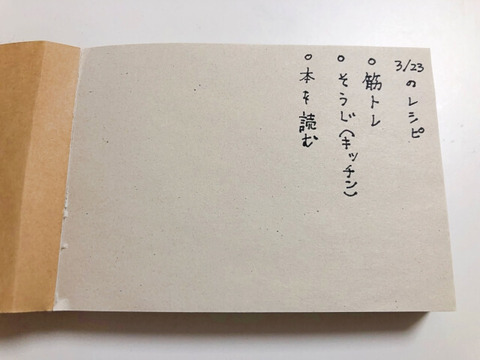 3/23のレシピ
○筋トレ
○そうじ(キッチン)
○本を読む